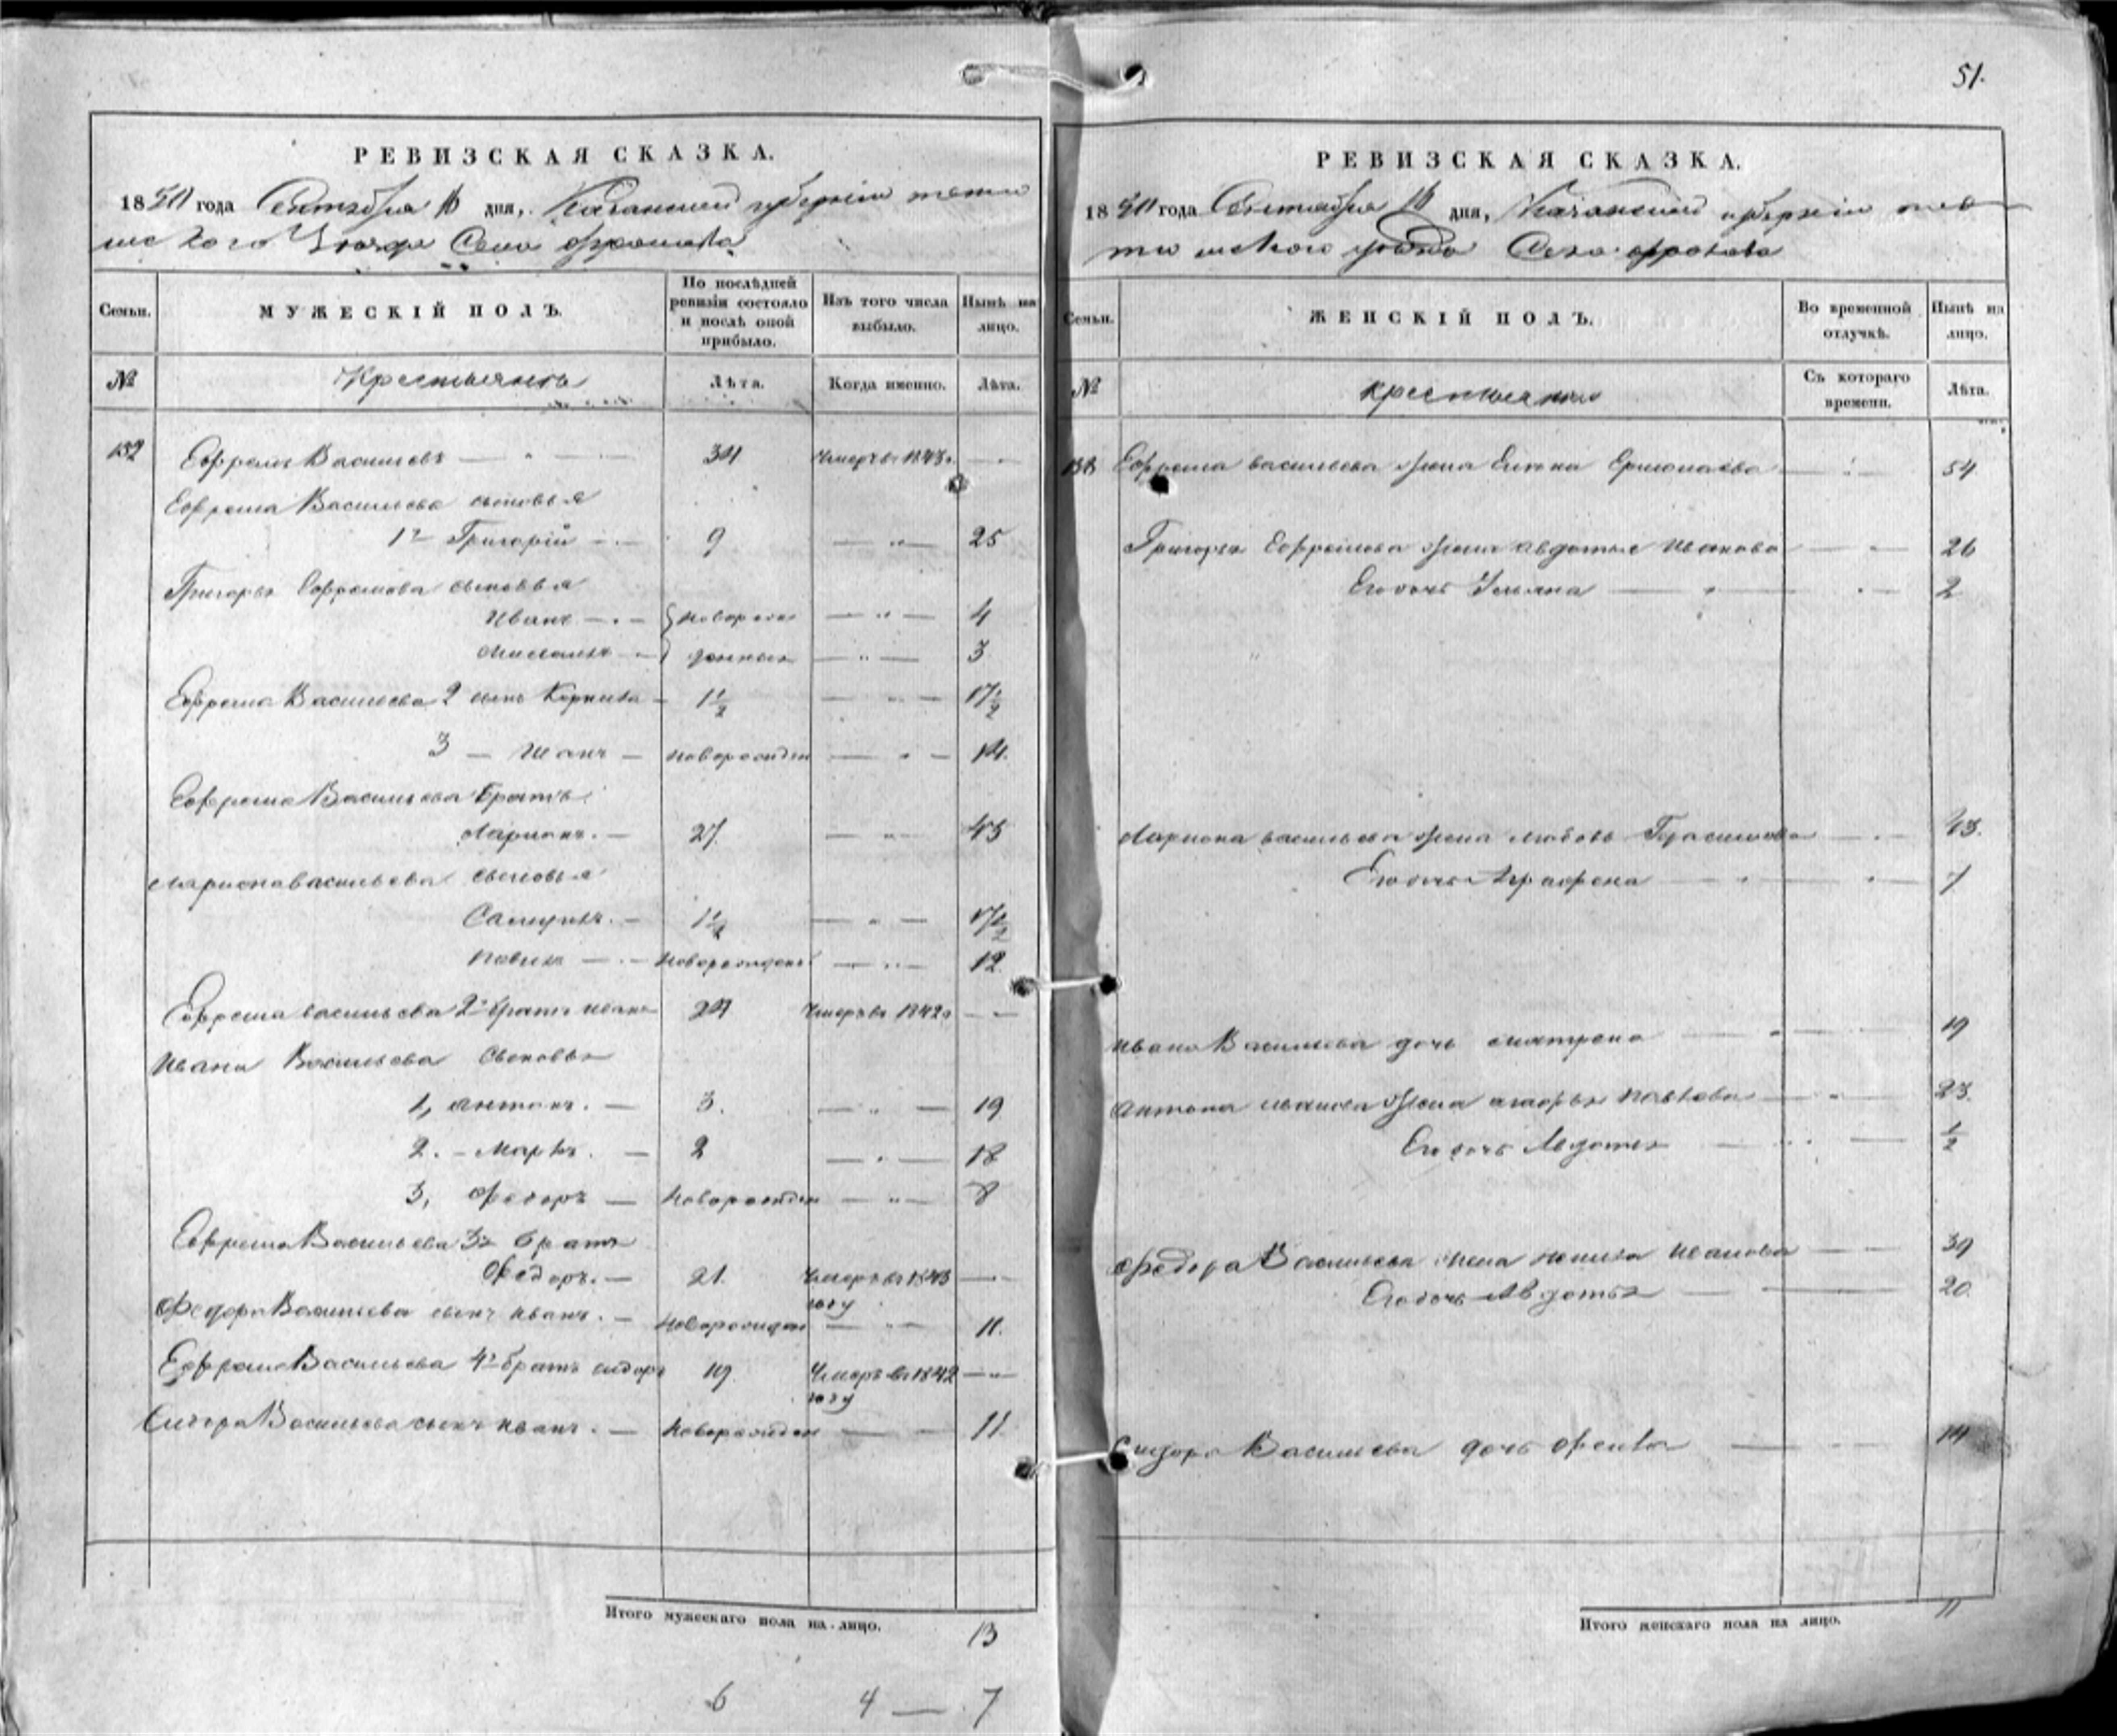 51.
РЕВИЗСКАЯ СКАЗКА.
1850 года Сентября 16 дня, Казанской губернiи тетю
шского Уезда Село
Семьи.
МУЖЕСКIЙ ПОЛЪ.
По послѣдней ревизiи состояло и послѣ оной прибыло.
Изъ того числа выбыло.
Нынѣ на лицо.
№
Крестьянъ
Лѣта.
Когда именно.
Лѣта.
132 Ефремъ Васильевъ 34 Умеръ въ 1843 —
Ефрема Васильева сыновья
1й Григорiй 9 — " — 25
Григорья Ефремова сыновья
Иванъ } новорож — " — 4
} денныя — " — 3
Ефрема Васильева 2 сынъ Корнила 1 1/2 — " — 17 1/2
3 — Иванъ — новорожден — " — 14.
Ефрема Васильева братъ
Ларионъ. — 27. — " — 43
Лариона васильева сыновья
Самуилъ. — — " — 17 1/2
Павелъ — новорожденъ — " — 12.
Ефрема васильева 2й братъ иванъ 24 Умеръ въ 1842 —
Ивана Васильева сыновья
1, антонъ. — 3. — " — 19
2. — Маркъ. — 2 — " — 18
3, Федоръ — Новорожден — " — 8
Ефрема Васильева 3й братъ
Федоръ. — 21. Умеръ въ 1843 году —
Федора Васильева сынъ иванъ. — Новорожден — " — 11.
Ефрема Васильева 4й братъ сидоръ 19. Умеръ въ 1842 году —
Сидора Васильева сынъ иванъ. — Новорожден — — 11
Итого мужескаго пола на лицо. 13
6 4 — 7
РЕВИЗСКАЯ СКАЗКА.
1850 года Сентября 16 дня, Казанской губернiи те
тюшского уезда Село
Семьи.
ЖЕНСКIЙ ПОЛЪ.
Во временной отлучкѣ.
Нынѣ на лицо.
№
крестьянъ
Съ котораго времени.
Лѣта.
Ефрема васильева жена Елена Ермолаева 54
Григорья Ефремова жена авдотье Иванова 26
Его дочь Ульяна 2
Лариона васильева жена любовь Герасимова 43.
Его дочь Аграфена 7
Ивана Васильева дочь матрена 19
Антона иванова жена Павлова 23.
Его дочь Авдотья 1/2
Федора Васильева жена Иванова 39
Его дочь Авдотья 20.
Сидора Васильева дочь Фекла 14
Итого женскаго пола на лицо. 11